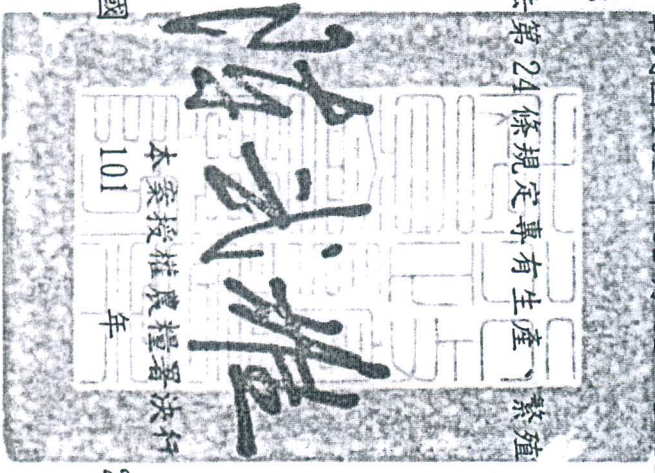 第 24 條規定專有生產、繁殖
陳武雄
本案授權農糧署決行
國 101 年